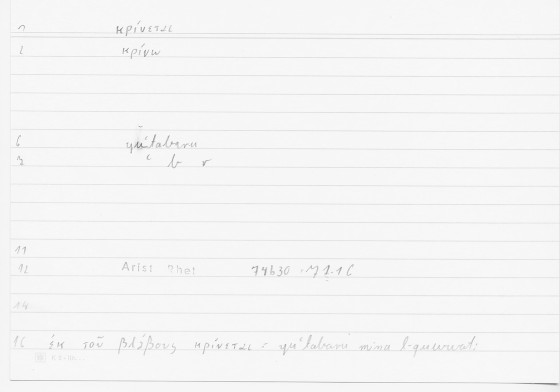 1 κρίνεται
2 κρίνω
6 yuʿtabaru
7 ʿ b r
11
12 Arist Rhet 74b30 71.16
14
16 ἐκ τοῦ βλάβους κρίνεται = yuʿtabaru mina l-